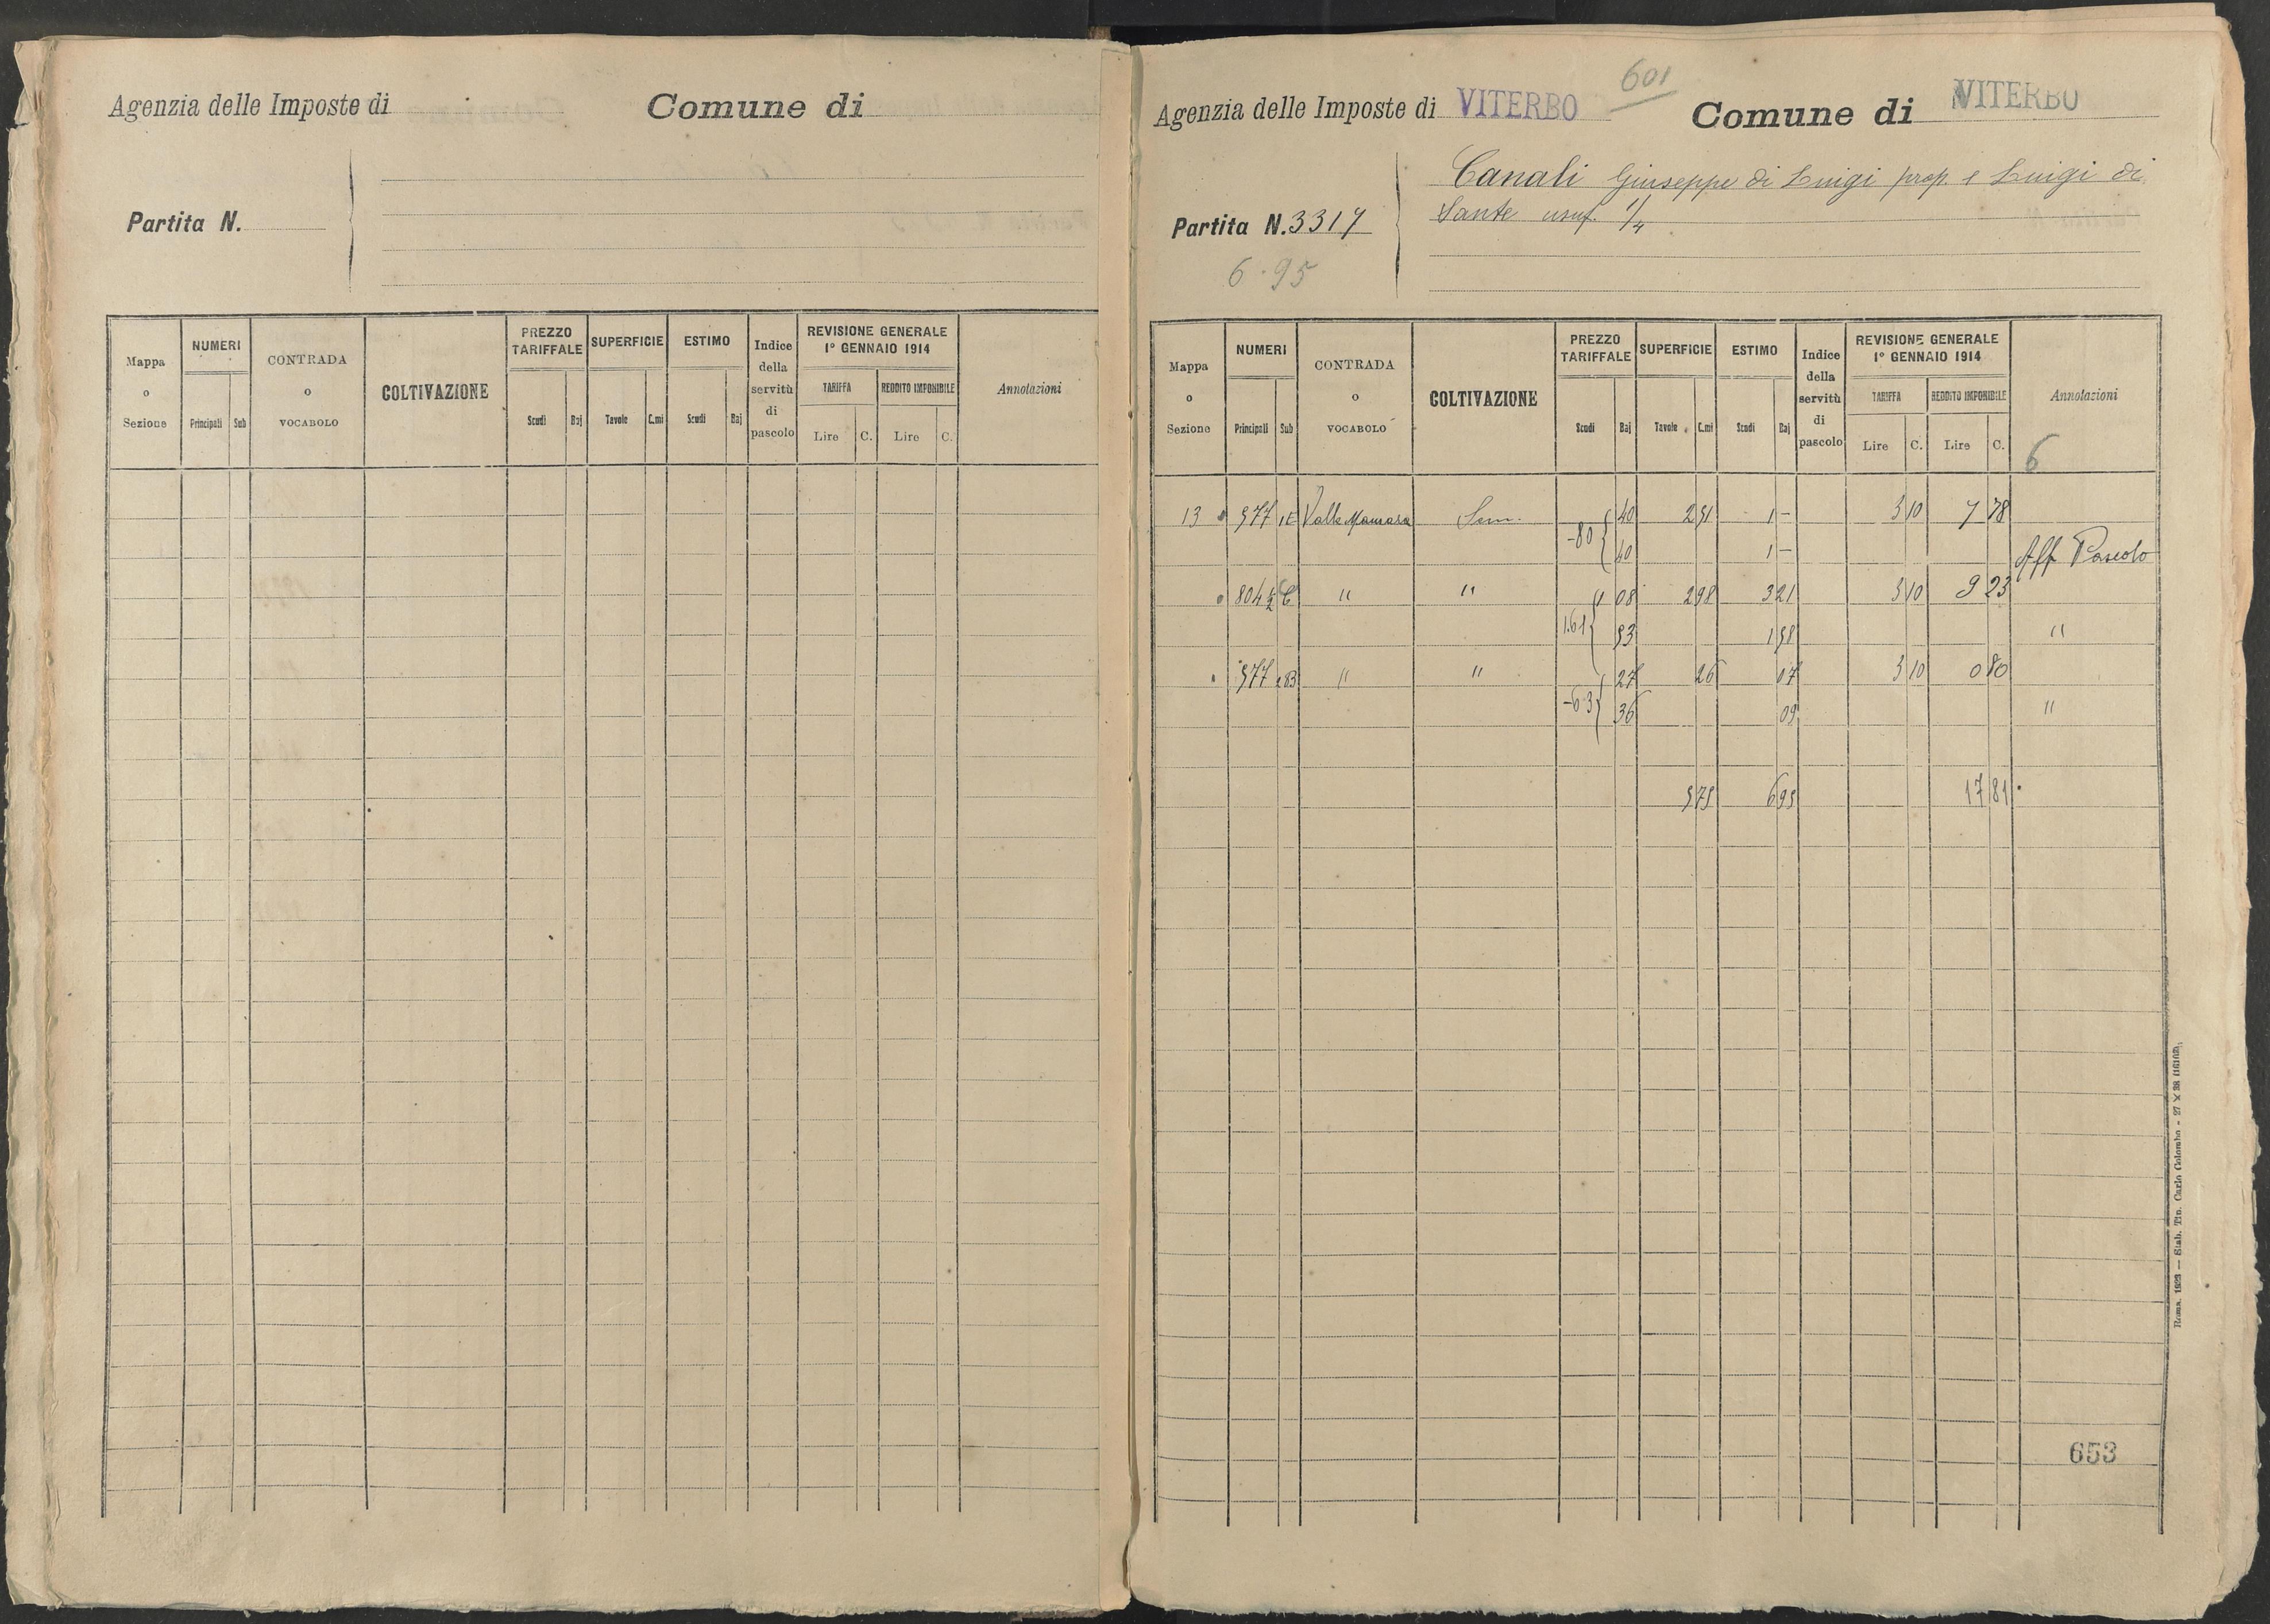 Agenzia delle Imposte di
Comune di
Partita N.
Mappa o Sezione
NUMERI
Principali Sub
CONTRADA o VOCABOLO
COLTIVAZIONE
PREZZO TARIFFALE
Scudi Baj
SUPERFICIE
Tavole C.mi
ESTIMO
Scudi Baj
Indice della servitù di pascolo
REVISIONE GENERALE 1° GENNAIO 1914
TARIFFA
Lire C.
REDDITO IMPONIBILE
Lire C.
Annotazioni
601
Agenzia delle Imposte di VITERBO
Comune di VITERBO
Partita N. 3317
6.95
Canali Giuseppe di Luigi prop. e Luigi di
Sante usuf. 1/4
Mappa o Sezione
NUMERI
Principali Sub
CONTRADA o VOCABOLO
COLTIVAZIONE
PREZZO TARIFFALE
Scudi Baj
SUPERFICIE
Tavole C.mi
ESTIMO
Scudi Baj
Indice della servitù di pascolo
REVISIONE GENERALE 1° GENNAIO 1914
TARIFFA
Lire C.
REDDITO IMPONIBILE
Lire C.
Annotazioni
6
13 577 Valle Sem. 40 2 51 1 - 3 10 7 78
-80 40 1 - Aff Pascolo
804 1/2 " " 1 08 2 98 3 21 3 10 9 23
1.61 53 1 58 "
577 " " 27 26 07 3 10 0 80
-63 36 09 "
5 75 6 95 17 81
653
Roma, 1923 — Stab. Tip. Carlo Colombo - 27 X 38